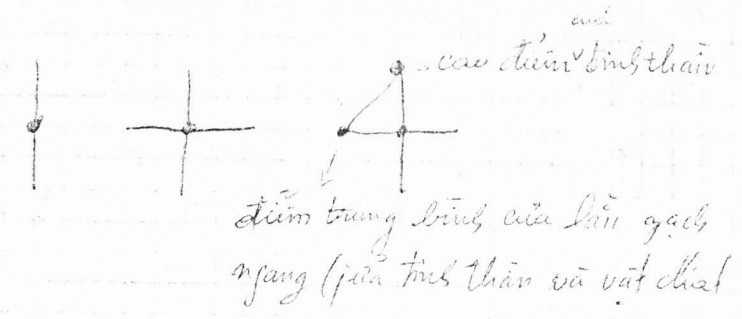 của
cao điểm tinh thần
điểm trung bình của lằn gạch
ngang (giữa tinh thần và vật chất